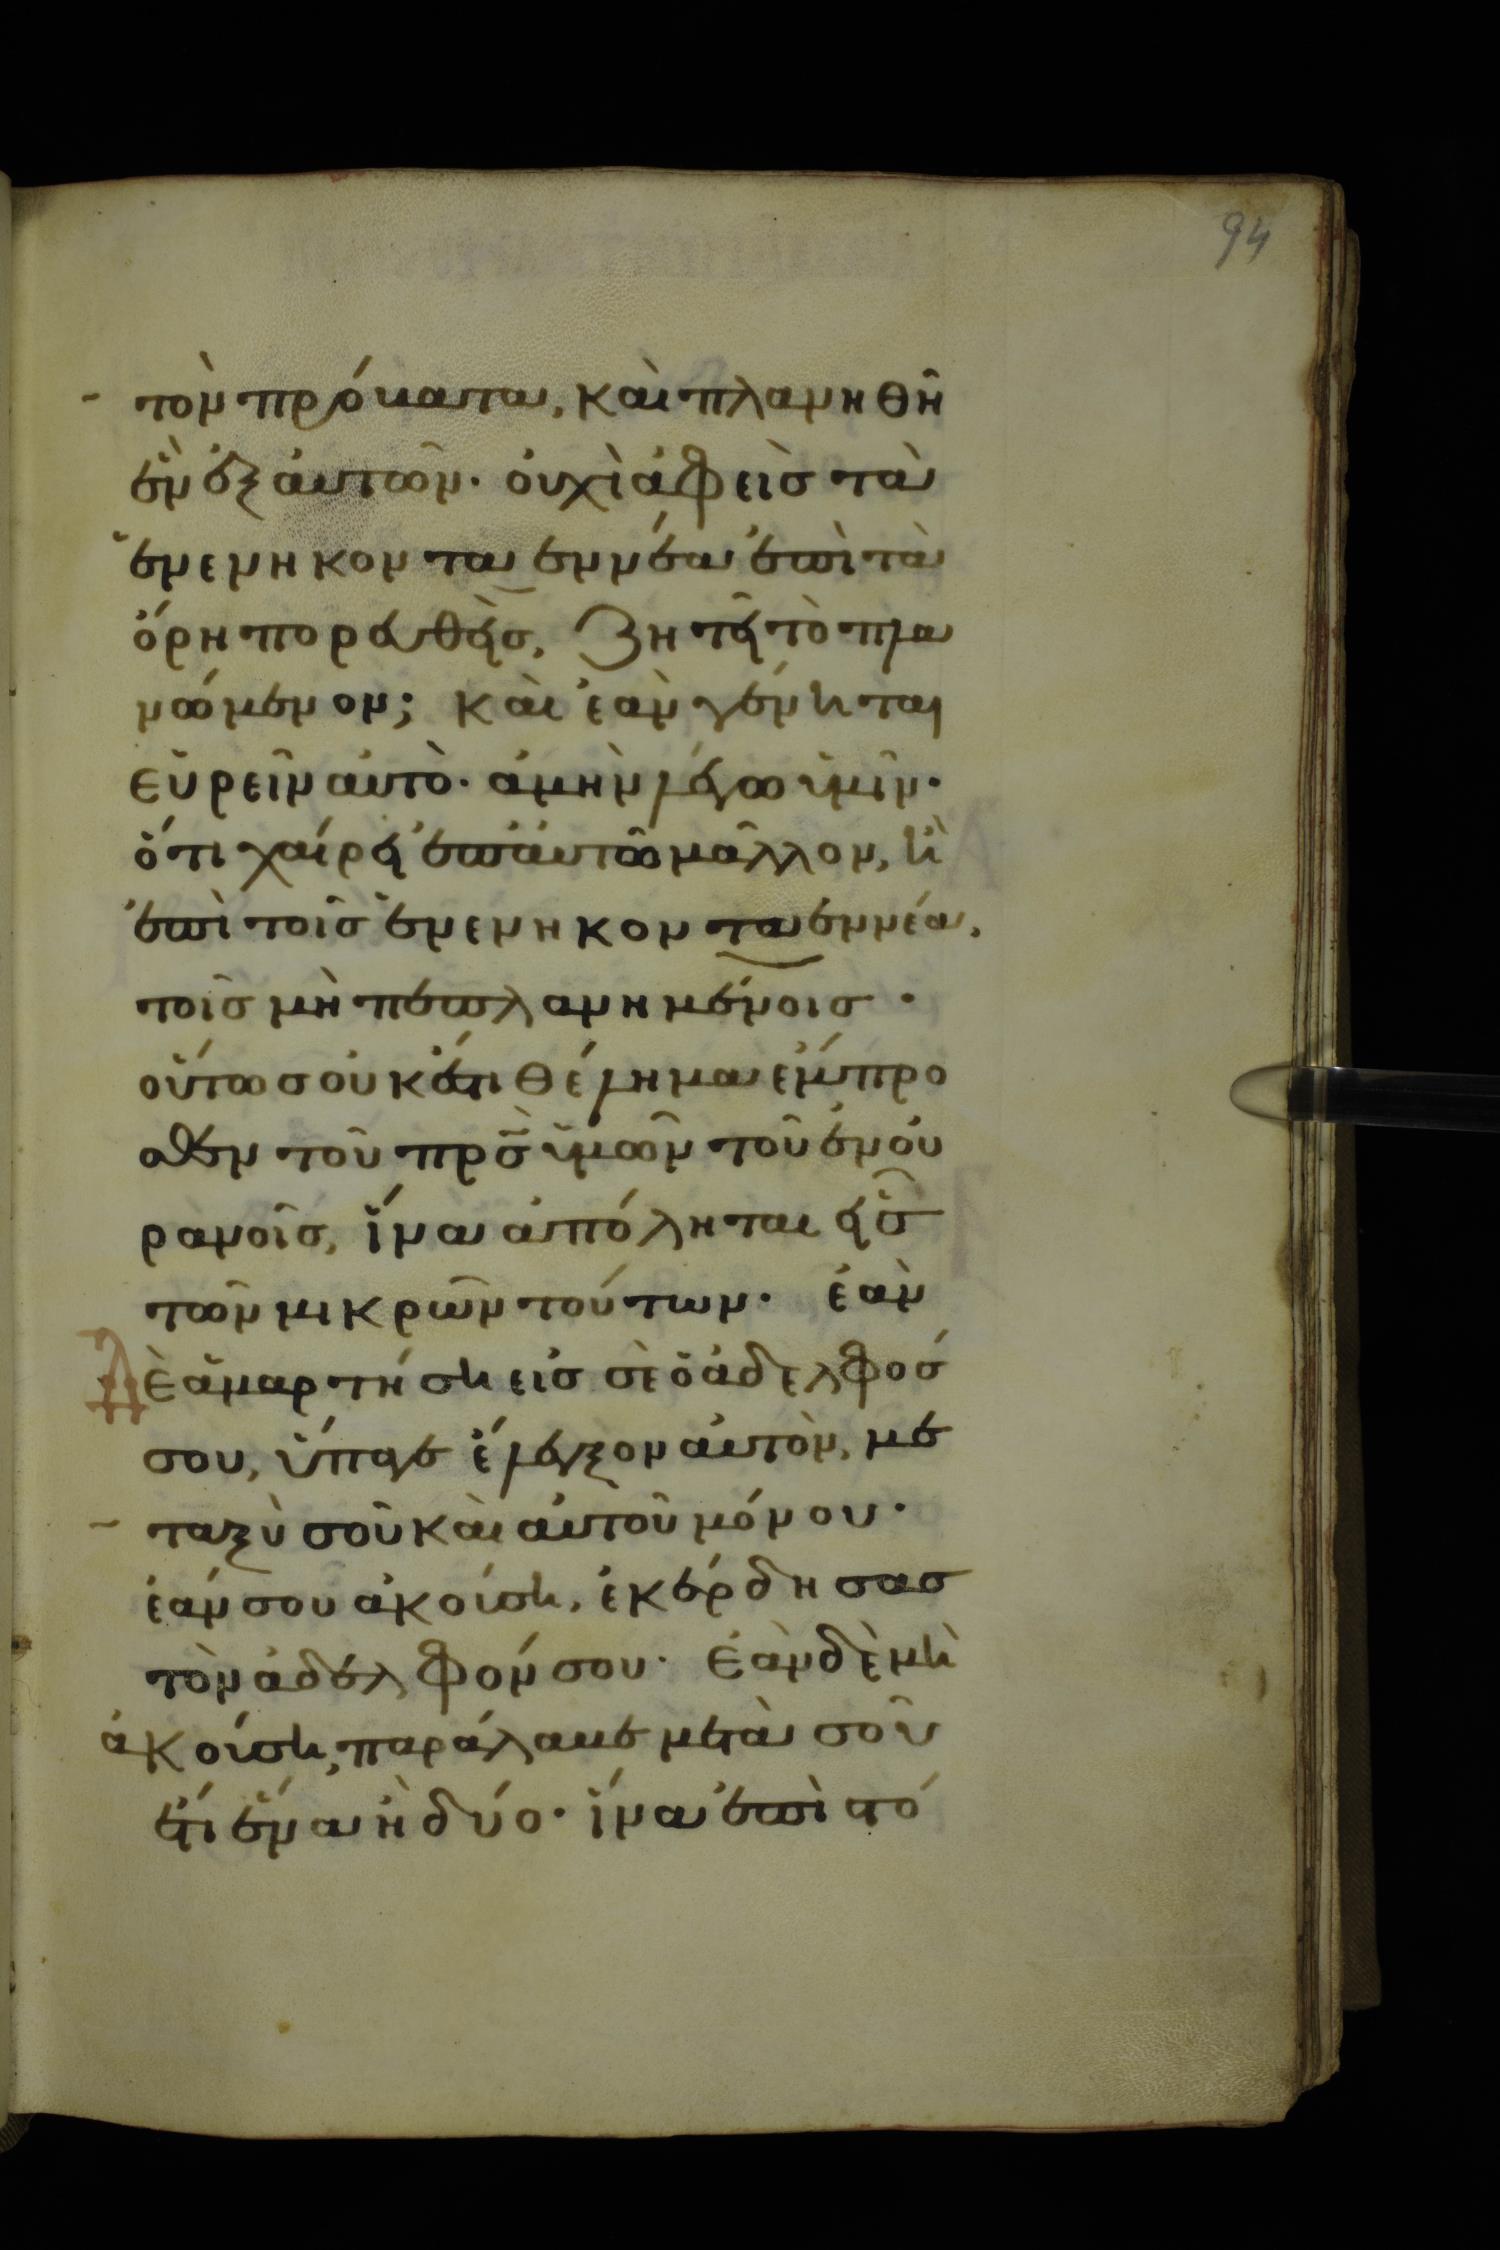 94
τὸν πρόβατα, καὶ πλανηθῆ
ἓν ἐξ αὐτῶν· οὐχὶ ἀφεὶς τὰ
ἐνενηκονταεννέα ἐπὶ τὰ
ὄρη πορευθεὶς, ζητεῖ τὸ πλα
νώμενον; καὶ ἐὰν γένηται
εὑρεῖν αὐτὸ· ἀμὴν λέγω ὑμῖν·
ὅτι χαίρει ἐπ' αὐτῶ μᾶλλον, ἢ
ἐπὶ τοῖς ἐνενηκονταεννέα,
τοῖς μὴ πεπλανημένοις·
οὕτως οὐκ ἔστι θέλημα ἔμπρο
σθεν τοῦ πρς̄ ὑμῶν τοῦ ἐν οὐ
ρανοῖς, ἵνα ἀπόληται εἷς
τῶν μικρῶν τούτων· ἐὰν
δὲ ἁμαρτήση εἰς σὲ ὁ ἀδελφός
σου, ὕπαγε ἔλεγξον αὐτὸν, με
ταξὺ σοῦ καὶ αὐτοῦ μόνου·
ἐάν σου ἀκούση, ἐκέρδησας
τὸν ἀδελφόν σου· Ἐὰν δὲ μὴ
ἀκούση, παράλαβε μετὰ σοῦ
ἔτι ἕνα ἢ δύο· ἵνα ἐπὶ στό